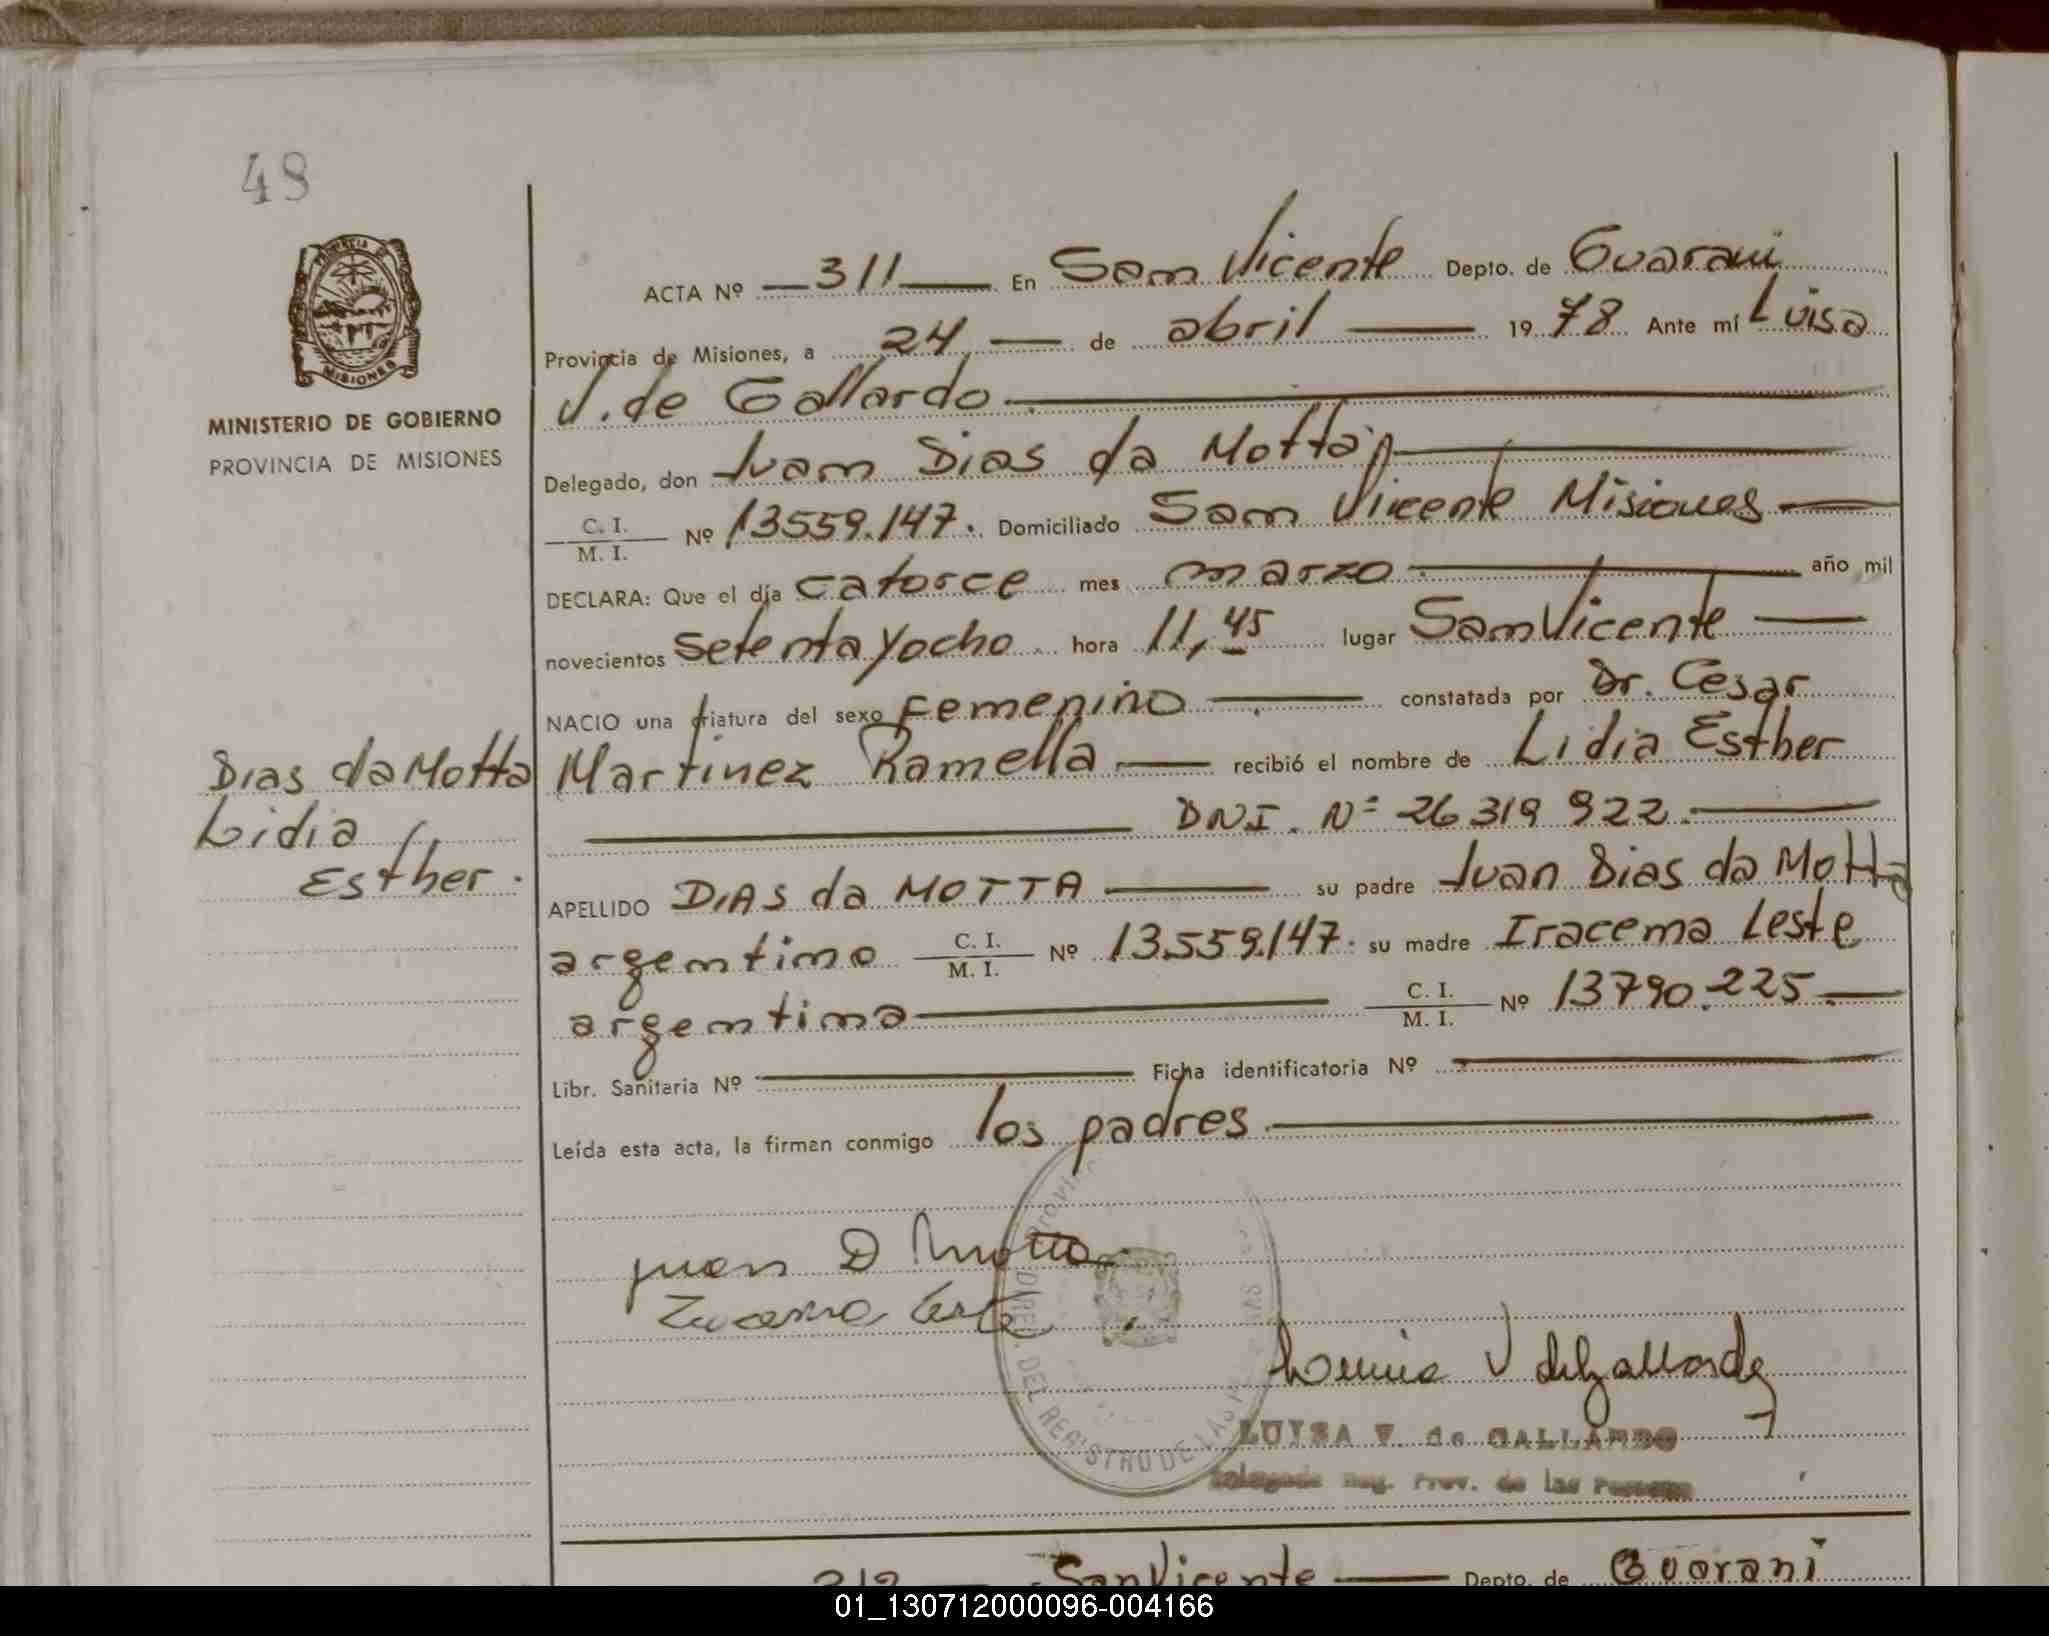 48
PROVINCIA DE
MISIONES
MINISTERIO DE GOBIERNO
PROVINCIA DE MISIONES
ACTA Nº 311 En San Vicente Depto. de Guarani
Provincia de Misiones, a 24 de abril 1978 Ante mí Luisa
V. de Gallardo
Delegado, don Juan Dias da Motta
C. I.
M. I. Nº 13559.147. Domiciliado San Vicente Misiones
DECLARA: Que el día catorce mes marzo año mil
novecientos setenta y ocho hora 11,45 lugar San Vicente
NACIO una criatura del sexo Femenino constatada por Dr. Cesar
Dias da Motta Martinez Ramella recibió el nombre de Lidia Esther
Lidia DNI. Nº 26 319 922.
Esther.
APELLIDO DIAS da MOTTA su padre Juan Dias da Motta
argentino C. I.
M. I. Nº 13.559.147. su madre Iracema Leste
argentina C. I.
M. I. Nº 13790.225.
Libr. Sanitaria Nº Ficha identificatoria Nº
Leída esta acta, la firman conmigo los padres
Juan D Motta
Iracema Leste
DEL REGISTRO DE LAS
V de Gallardo
LUISA V. de GALLARDO
Delegada Reg. Prov. de las Personas
312 San Vicente Depto. de Guarani
01_130712000096-004166